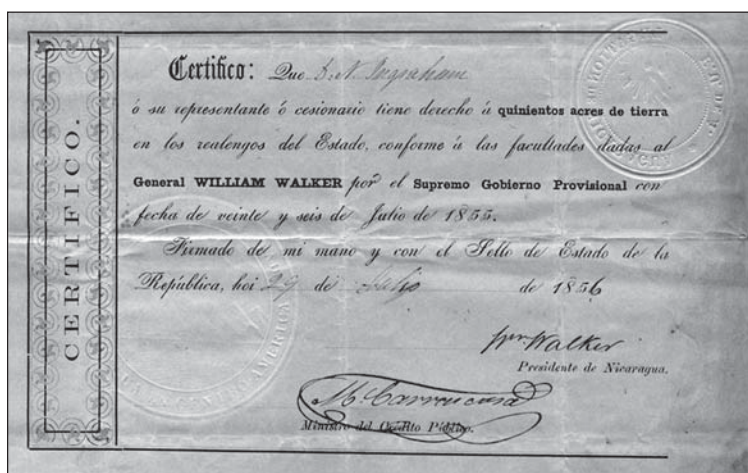 CERTIFICO.
Certifico: Que D. N. Ingraham
ó su representante ó cesionario tiene derecho á quinientos acres de tierra
en los realengos del Estado, conforme á las facultades dadas al
General WILLIAM WALKER por el Supremo Gobierno Provisional con
fecha de veinte y seis de Julio de 1855.
Firmado de mi mano y con el Sello de Estado de la
República, hoi 29 de Julio de 1856
Wm Walker
Presidente de Nicaragua.
M. Carrascosa
Ministro del Crédito Público.